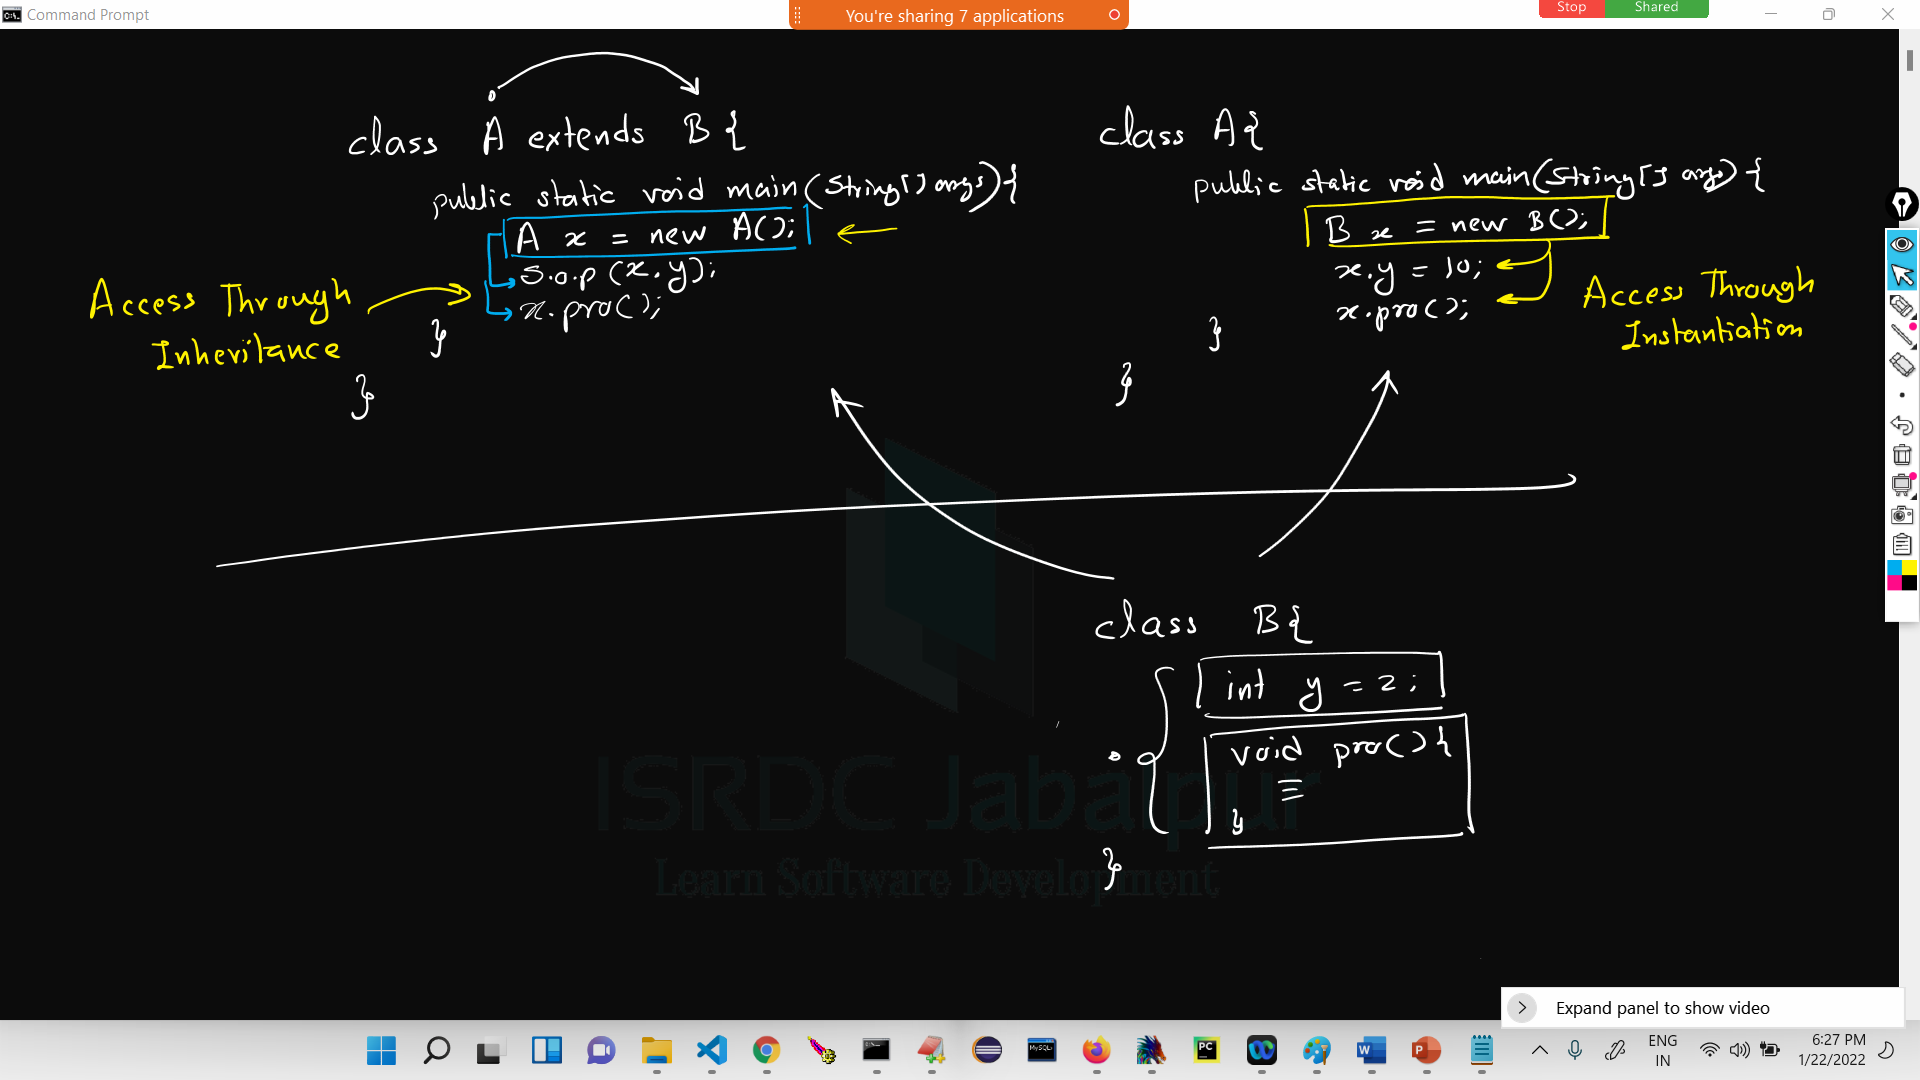 Command Prompt
You're sharing 7 applications
Stop
Shared
class A extends B{
public static void main(String[] args){
A x = new A();
S.o.p (x.y);
x.pro();
}
}
Access Through
Inheritance
class A{
public static void main(String[] args){
B x = new B();
x.y = 10;
x.pro();
}
}
Access Through
Instantiation
class B{
int y = 2;
void pro(){
}
}
ISRDC Jabalpur
Learn Software Development
Expand panel to show video
ENG
IN
6:27 PM
1/22/2022